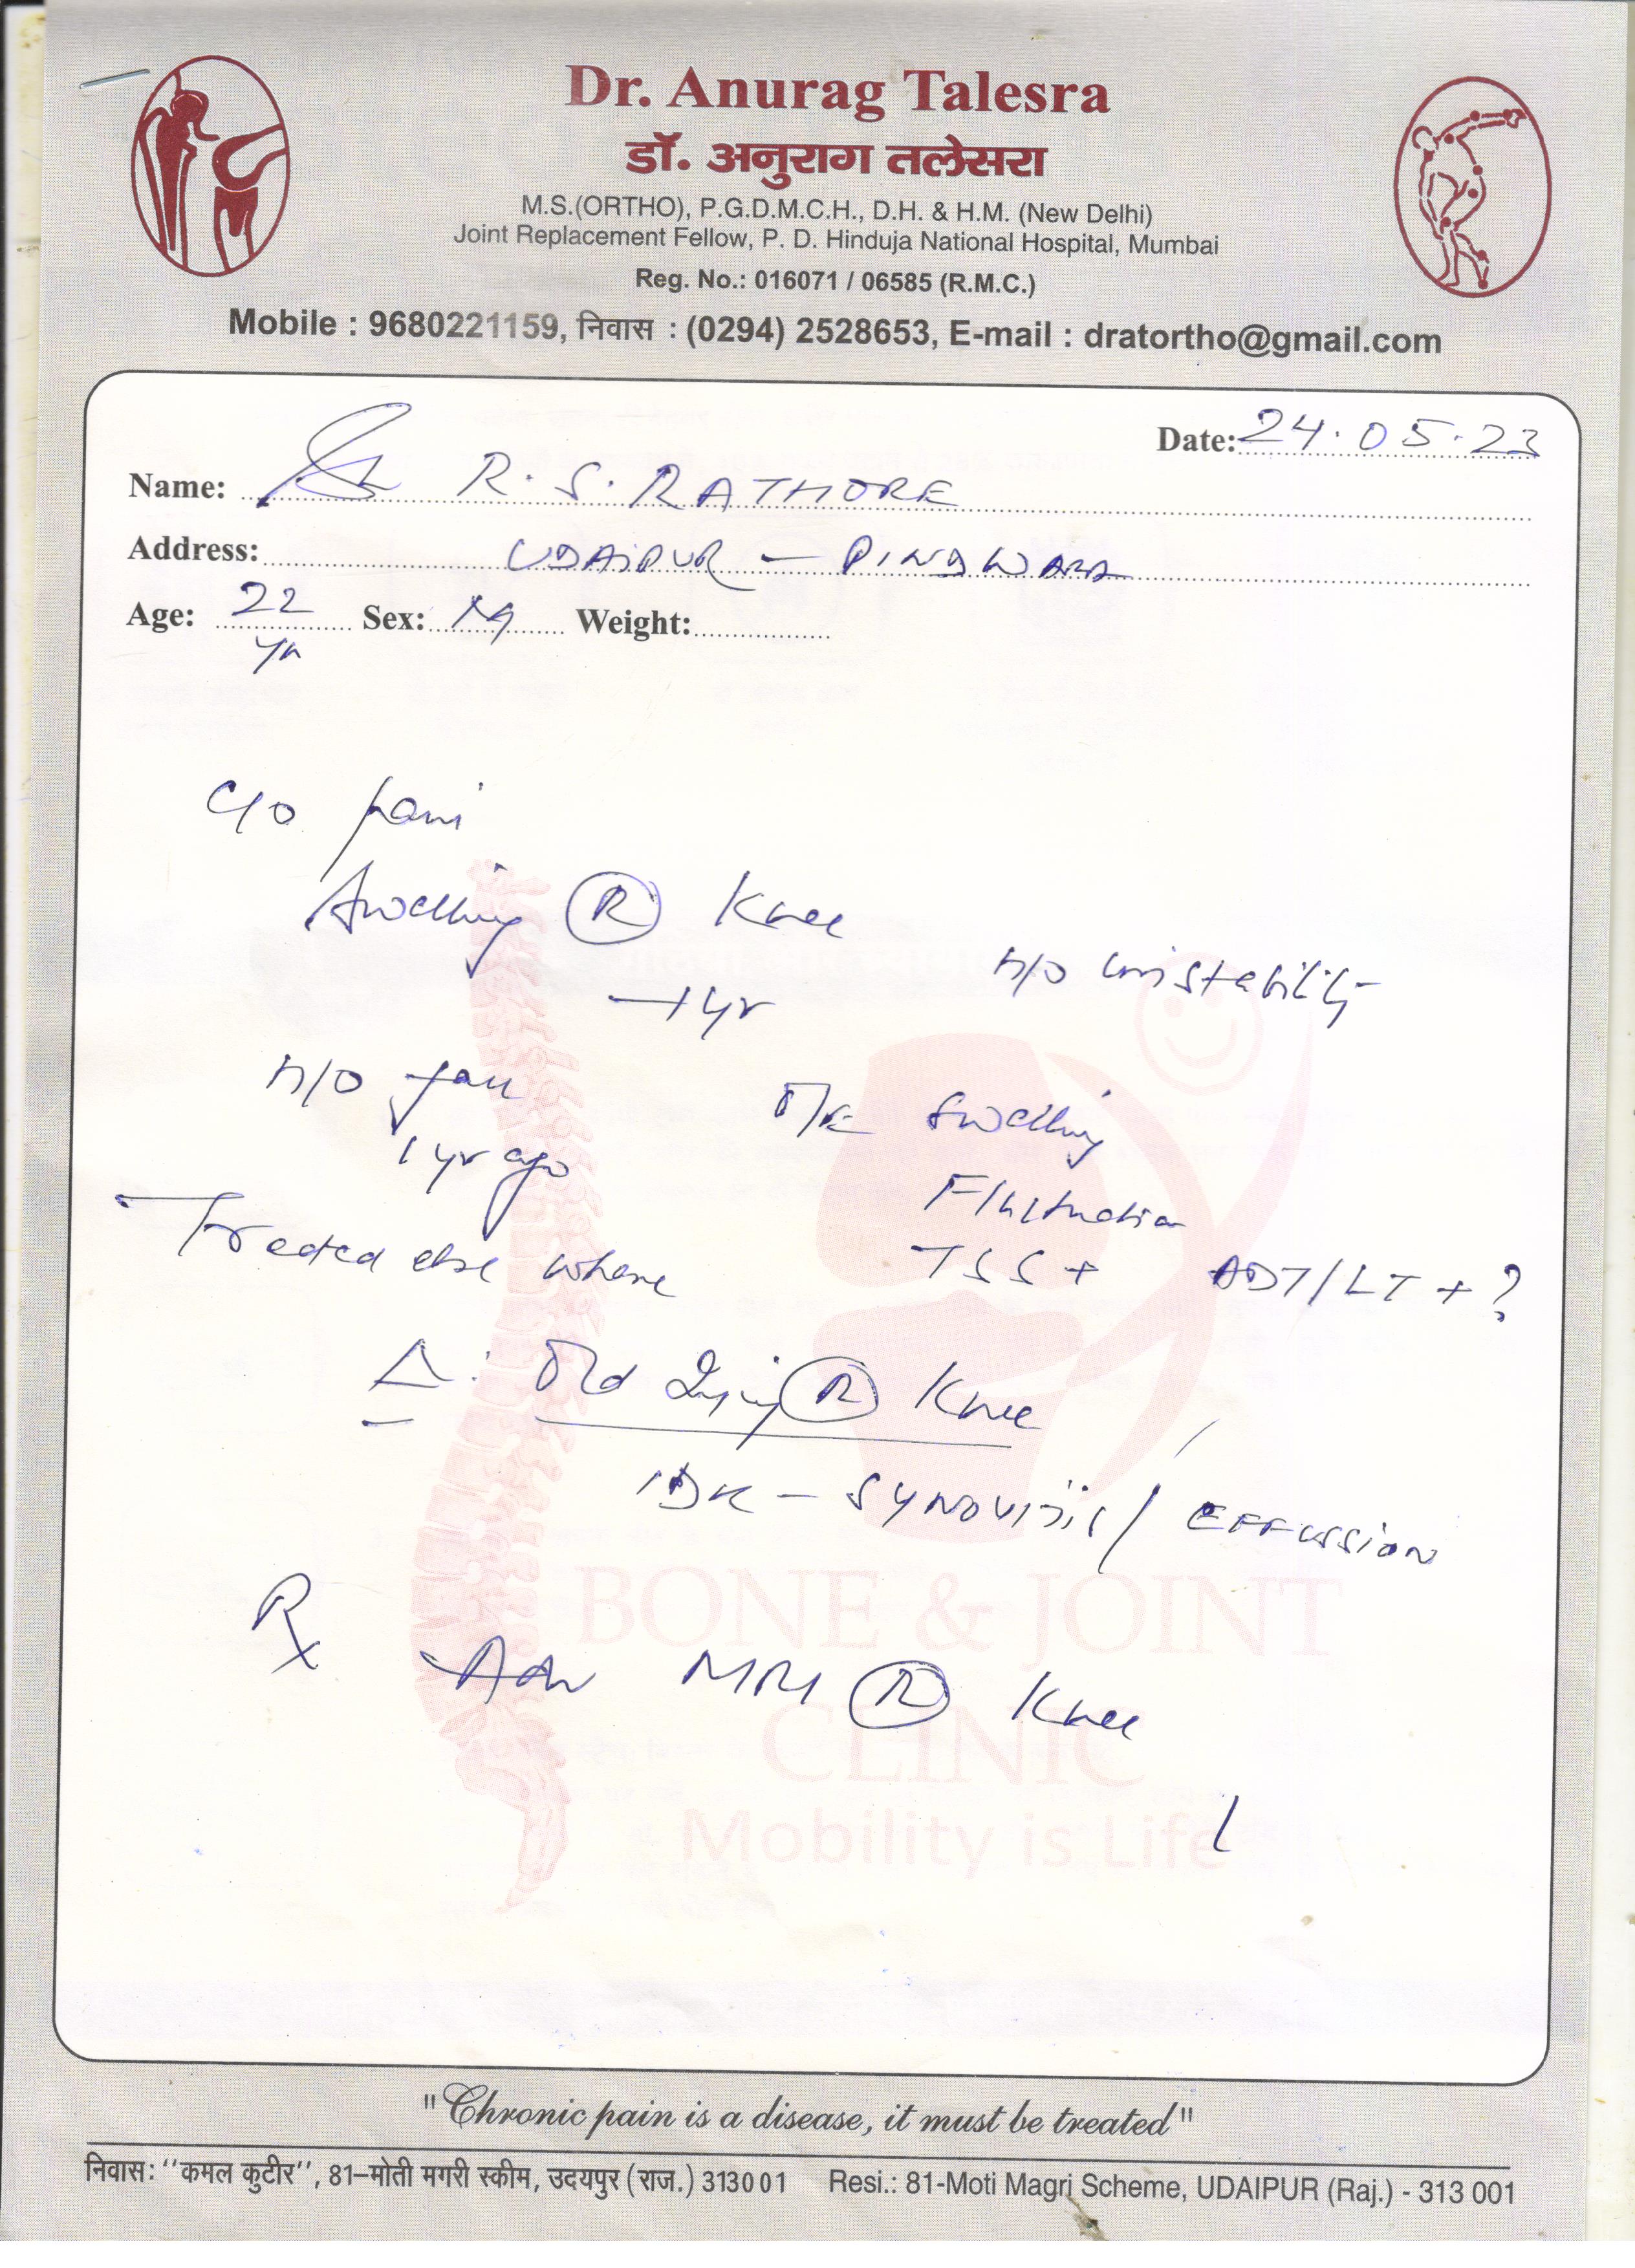 Dr. Anurag Talesra
डॉ. अनुराग तलेसरा
M.S.(ORTHO), P.G.D.M.C.H., D.H. & H.M. (New Delhi)
Joint Replacement Fellow, P. D. Hinduja National Hospital, Mumbai
Reg. No.: 016071 / 06585 (R.M.C.)
Mobile : 9680221159, निवास : (0294) 2528653, E-mail : dratortho@gmail.com
Date: 24.05.23
Name: R. S. RATHORE
Address: UDAIPUR - PINDWARA
Age: 22 yr Sex: M Weight:
C/O pain
Swelling (R) Knee
- 1 yr
H/O instability
H/O fall
1 yr ago
O/E Swelling
Fluctuation
Treated else where
TSS + ADT/LT + ?
Δ: Old Injury (R) Knee
IDK - SYNOVITIS / EFFUSSION
Rx
Adv MRI (R) Knee
BONE & JOINT
CLINIC
Mobility is Life
"Chronic pain is a disease, it must be treated"
निवास: ''कमल कुटीर'', 81-मोती मगरी स्कीम, उदयपुर (राज.) 313001 Resi.: 81-Moti Magri Scheme, UDAIPUR (Raj.) - 313 001